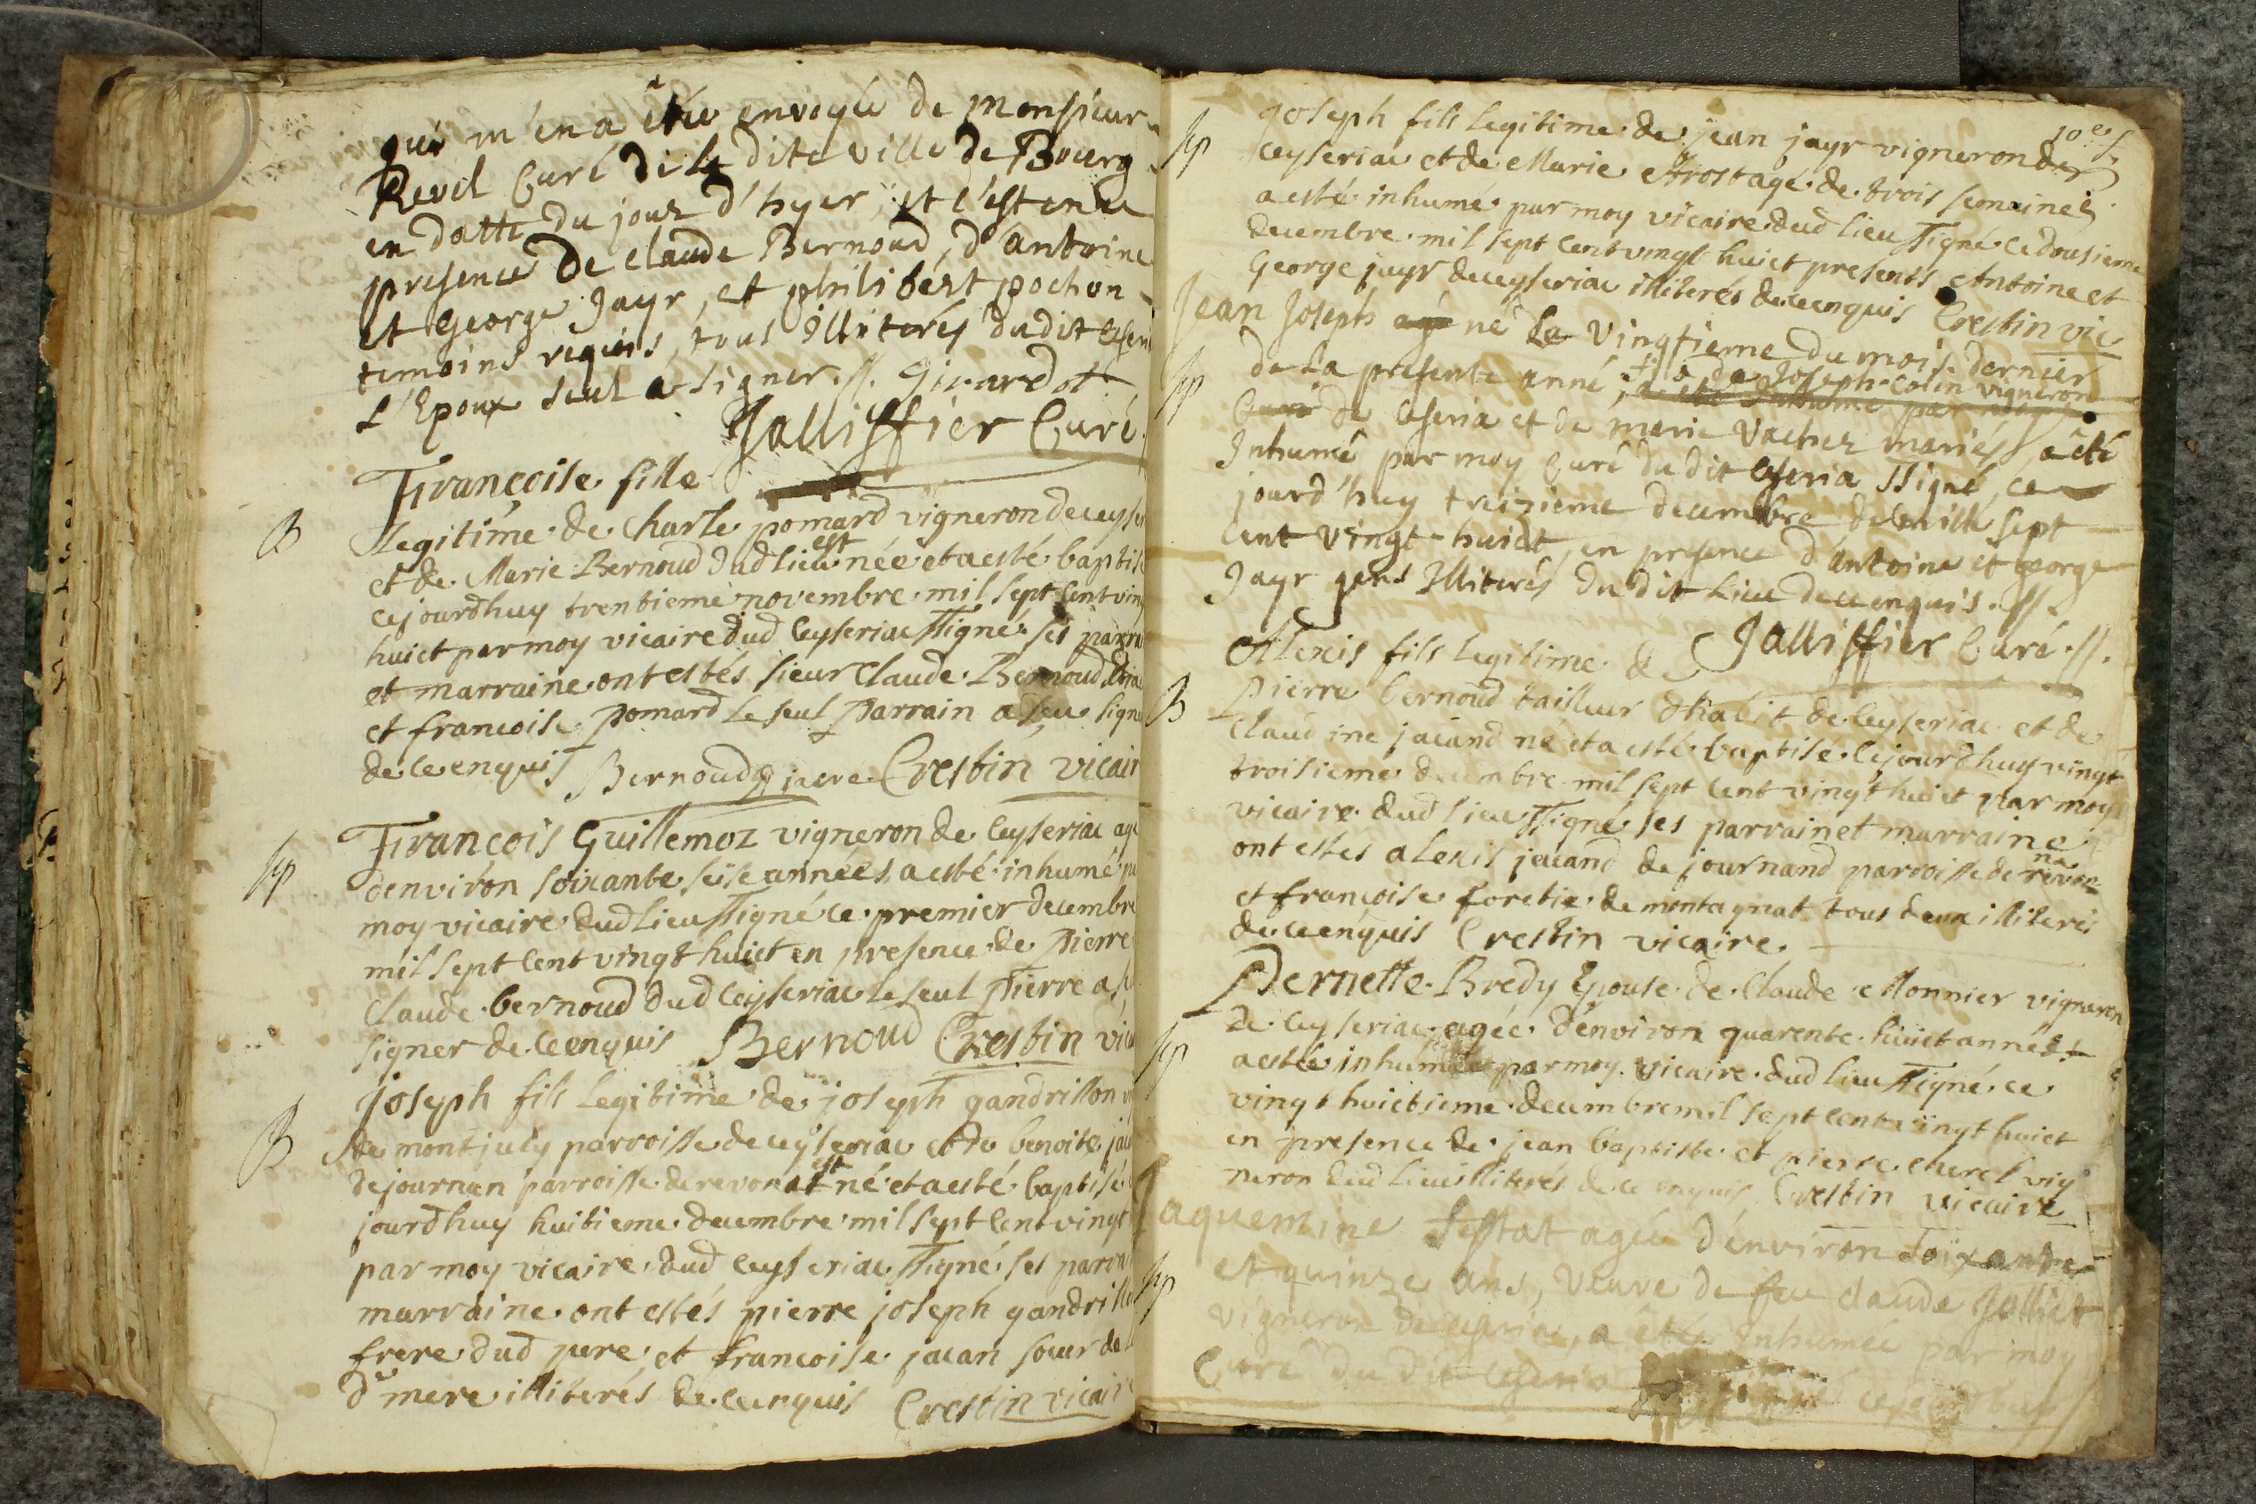 qui m'en a êtée envoyée de Monsieur
Revel Curé de la dite ville de Bourg
en datte du jour d'hyer, et c'est en
presence de Claude Bernoud, d'antoine
et George Jayr, et philibert pochon
temoins requis, tous illiterés dudit
L'Epoux seul a signer .//. Girardot
Jalliffier Curé.
Francoise fille
B
Legitime de Charle pomard vigneron de
et de Marie Bernoud dud lieu est née et a esté baptis
cejourdhuy trentieme novembre mil sept cent vin
huict par moy vicaire dud Ceyseriac ssigné ses parra
et marraine ont estés sieur Claude Bernoud
et francoise pomard le seul Parrain a sceu signe
de ce enquis Bernoud Crestin vicair
François Guillemoz vigneron de Ceyseriac agé
sp
d'environ soixante seise années a esté inhumé
moy vicaire dud lieu ssigné ce premier decembre
mil sept cent vingt huict en presence de Pierre
Claude bernoud dud Ceyseriac le seul Pierre a
signer de ce enquis Bernoud Crestin
joseph fils legitime de joseph gandrillon
B
de montjuly parroisse de ceyseriac et de benoite
de journan parroisse de revonat est né et a esté baptisé
jourdhuy huitieme decembre mil sept cent vingt
par moy vicaire dud ceyseriac ssigné ses parra
marraine ont estés pierre joseph gandrill
frere dud pere et francoise jacan soeur de
de mere illiterés de ce enquis Crestin vicair
joseph fils legitime de jean jayr vigneron de
10es
sp
ceyseriac et de Marie agé de trois semaines
a esté inhumé par moy vicaire dud lieu ssigné ce dousieme
decembre mil sept cent vingt huict presents Antoine et
George jayr de ceyseriac illiterés de ce enquis Crestin vic
Jean Joseph né Le vingtieme du mois dernier
sp
de la presente anné, fils de Joseph Colin vigneron
de Ceseria et de marie vacher mariés a êté
Inhumé par moy Curé du dit Ceseria ssigné, ce
jourd'huy treizieme decembre de mille sept
cent vingt-huict, en presence d'antoine et george
Jayr gens Illiterés du dit Lieu de ce enquis .//.
Jalliffier Curé .//.
Alexis fils legitime de
B
Pierre bernoud tailleur d'habit de Ceyseriac et de
Claudine jacand né et a esté baptisé cejourdhuy vingt
troisieme decembre mil sept cent vingt huict par moy
vicaire dud lieu ssigné ses parrain et marraine
ont estes alexis jacand de journand parroisse de revonna
et françoise foretie de montagnat tous deux illiterés
de ce enquis Crestin vicaire.
Pernette Bredy Epouse de Claude Monnier vigneron
sp
de Ceyseriac agée d'environ quarente huict années
a estée inhumée par moy vicaire dud lieu ssigné ce
vingt huictieme decembre mil sept cent vingt huict
en presence de jean baptiste et pierre vig
neron dud lieu illiterés de ce enquis Crestin vicaire
Jaquemine agée d'environ soixante
sp
et quinze ans, veuve de feu claude Jolliet
vigneron de a êtée Inhumée par moy
Curé du dit Ceseria